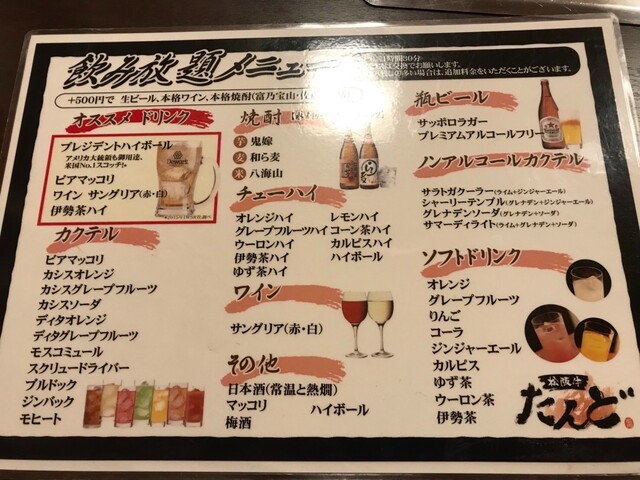 飲み放題メニュー
+500円で 生ビール、本格ワイン、本格焼酎(富乃宝山・佐
オススメ ドリンク
プレジデントハイボール
アメリカ大統領も御用達。
米国No.1スコッチ!
ビアマッコリ
ワイン サングリア(赤・白)
伊勢茶ハイ
カクテル
ビアマッコリ
カシスオレンジ
カシスグレープフルーツ
カシスソーダ
ディタオレンジ
ディタグレープフルーツ
モスコミュール
スクリュードライバー
ブルドック
ジンバック
モヒート
焼酎
芋 鬼嫁
麦 和ら麦
米 八海山
チューハイ
オレンジハイ レモンハイ
グレープフルーツハイ コーン茶ハイ
ウーロンハイ カルピスハイ
伊勢茶ハイ ハイボール
ゆず茶ハイ
ワイン
サングリア(赤・白)
その他
日本酒(常温と熱燗)
マッコリ ハイボール
梅酒
瓶ビール
サッポロラガー
プレミアムアルコールフリー
ノンアルコールカクテル
サラトガクーラー(ライム+ジンジャーエール)
シャーリーテンプル(グレナデン+ジンジャーエール)
グレナデンソーダ(グレナデン+ソーダ)
サマーディライト(ライム+グレナデン+ソーダ)
ソフトドリンク
オレンジ
グレープフルーツ
りんご
コーラ
ジンジャーエール
カルピス
ゆず茶
ウーロン茶
伊勢茶
松阪牛
たんど